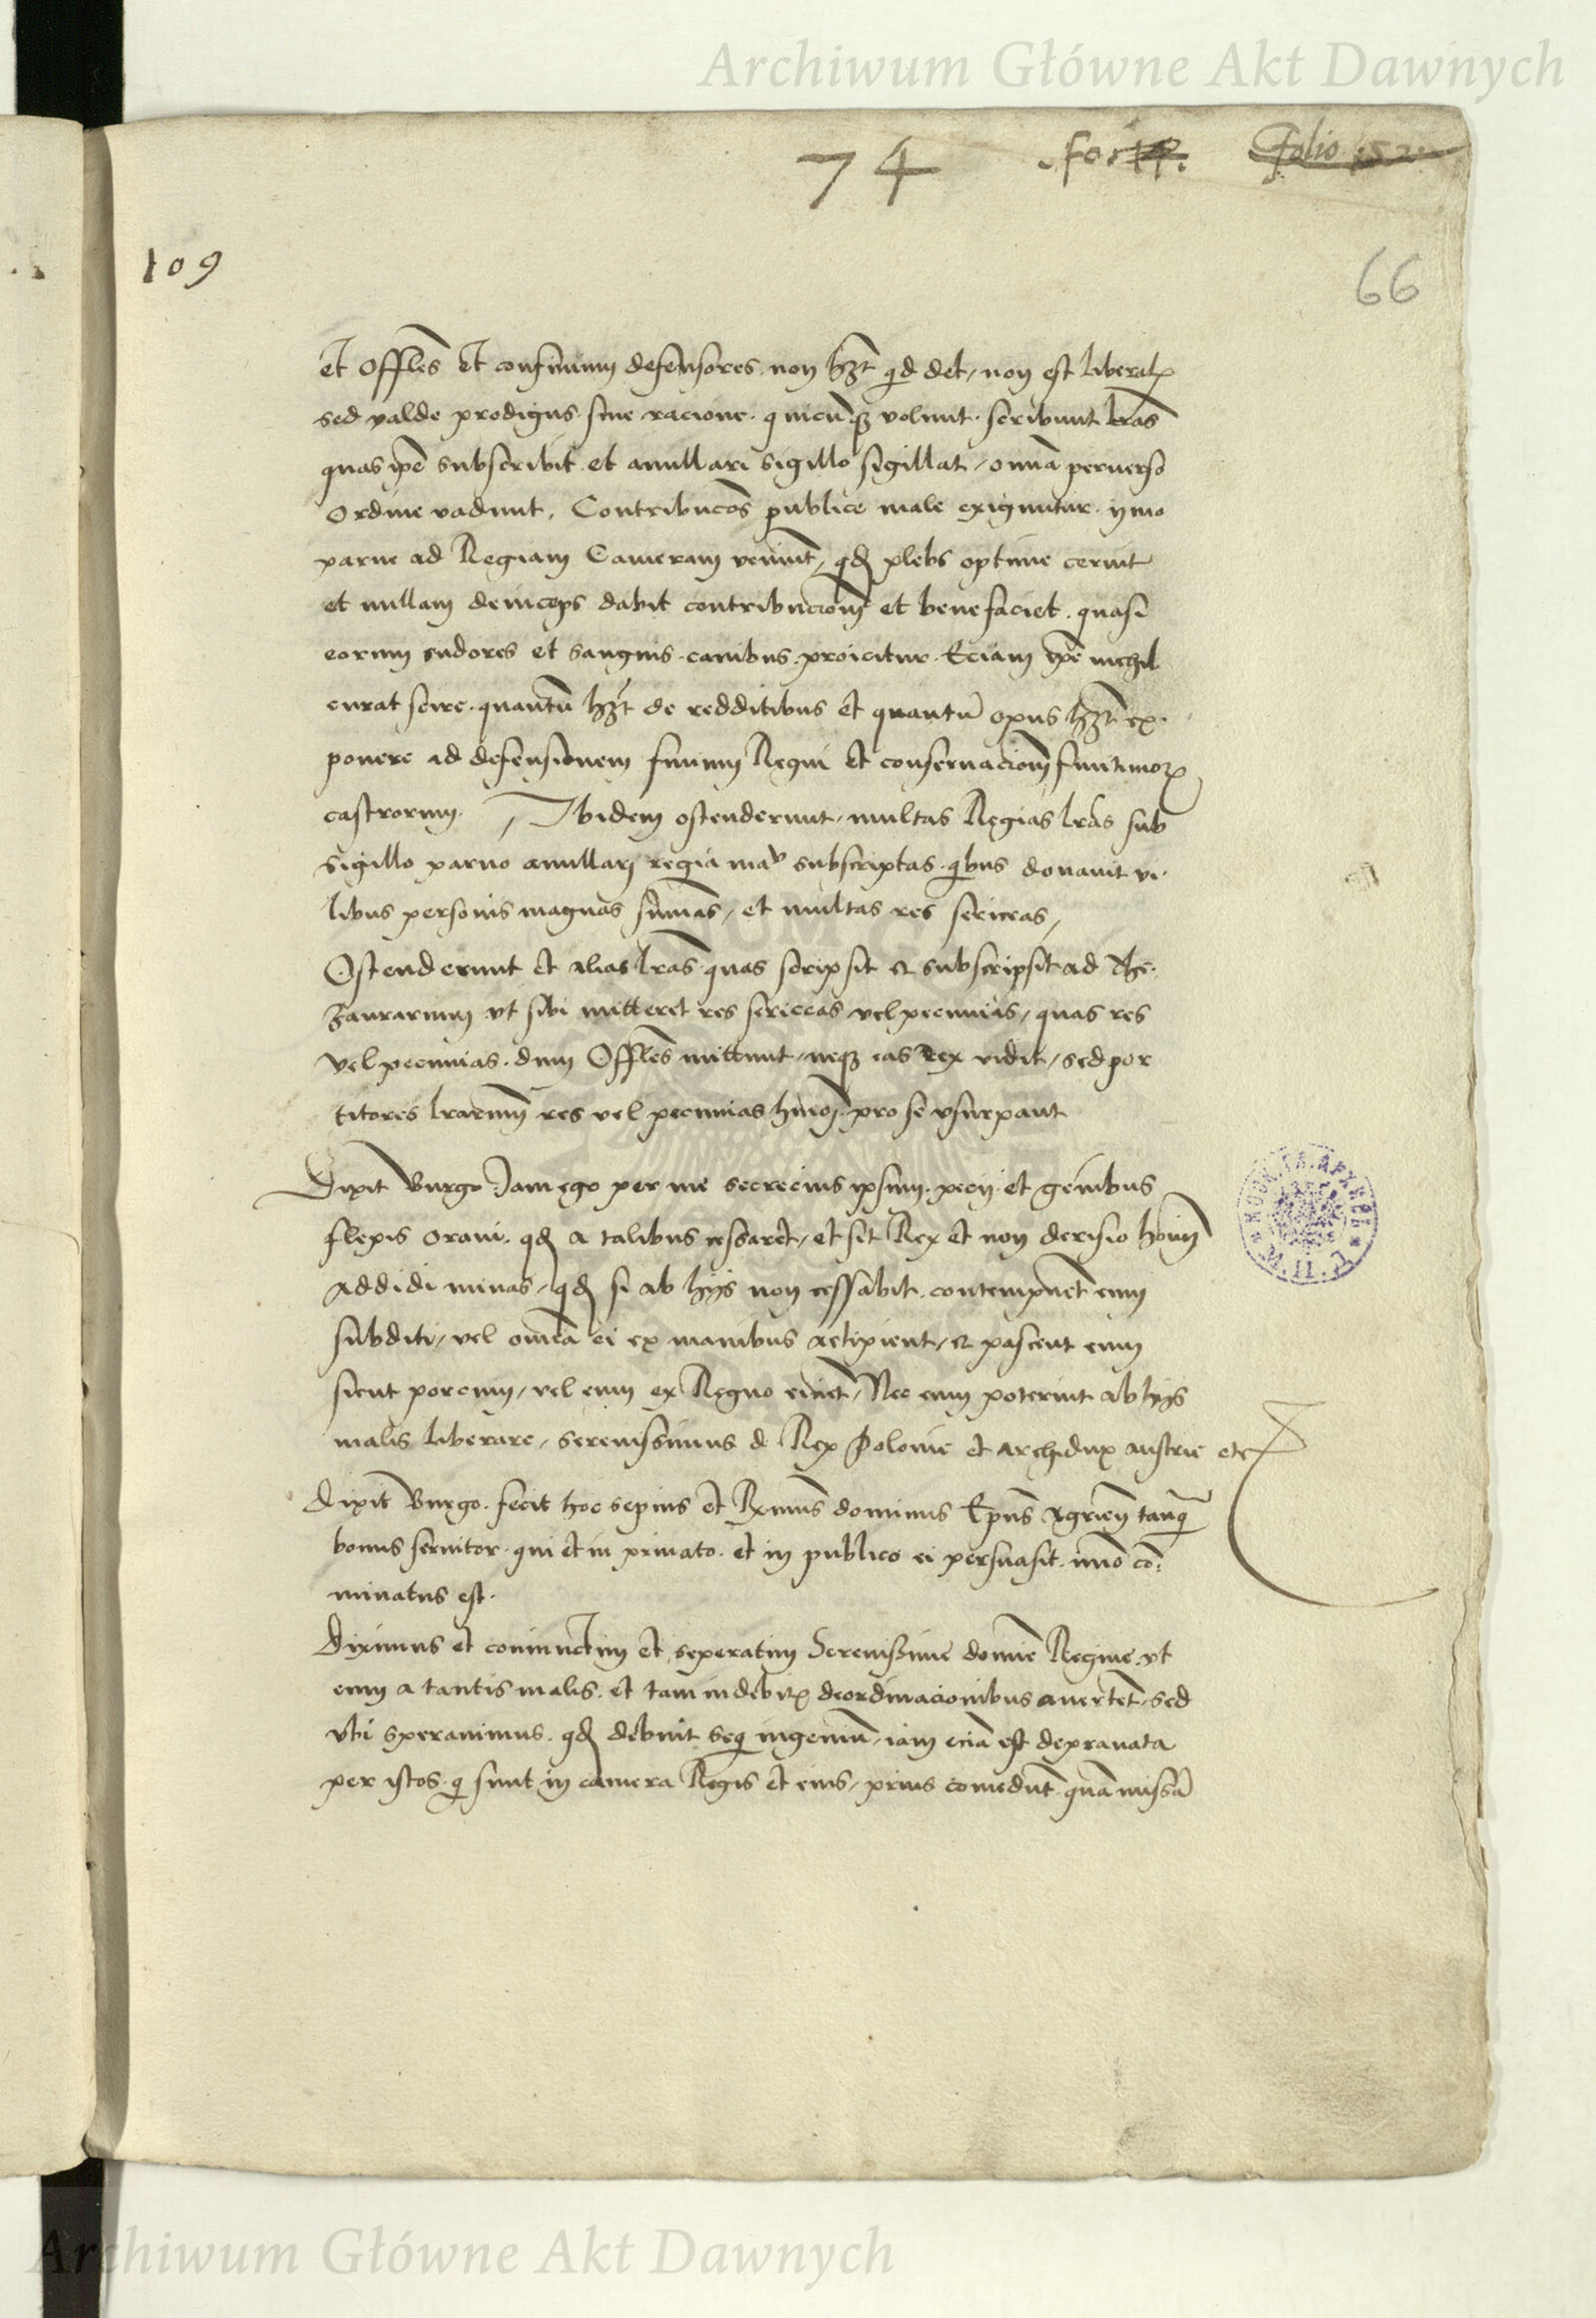 Archiwum Główne Akt Dawnych
74
Folio 152
109
66
et Offles et confinium defensores. non hzt qid det, non est liberal
sed valde prodigus sine racione. quicuqz volunt. scribunt lras
quas ipe subscribit. et anullari sigillo sigillat, omia perverso
Ordine vadunt. Contribucoes publice male exiguntur. ymo
parue ad Regiam Cameram veniut, qd plebs optime cernit
et nullam deinceps dabit contribucionem et bene faciet. quasi
eorum sudores et sanguis. canibus. proicitur. Eciam ipe nichil
curat scire. quantu hzt de redditibus et quantu opus hzt ex.
ponere ad defensionem finium Regni et conservacionem finitimor
castrorum. Ibidem ostenderunt, multas Regias lras sub
sigillo parvo anullari regia mau subscriptas. qibus donavit vi.
libus personis magnas sumas, et multas res sericeas,
Ostenderunt et alias lras. quas scripsit et subscripsit ad The.
zaurarium vt sibi mitteret res sericeas vel pecunias, quas res
vel pecunias. dum Offles mittunt, neqz eas Rex vidit, sed por
titores lrarum res vel pecunias hmoi. pro se vsurpant
Dixit Burgo Iam ego per me secrecius ipsum. pecij. et genibus
flexis oravi. qd a talibus cessaret, et sit Rex et non derisio hoim
Addidi minas, qd si ab hijs non cessabit. contempnet eum
subditi, vel omia ei ex manibus accipient, et pascent eum
sicut porcum, vel eum ex Regno eiciet, Nec eum poterint ab hijs
malis liberare, serenissimus d Rex Polonie et archidux austrie etc
Dixit Burgo. fecit hoc sepius et Rxmus dominus Epus Agrien tanq
bonus servitor. qui et in privato. et in publico ei persuasit. imo co
minatus est.
Diximus et coniunctim et seperatim Serenissime domie Regine. vt
eum a tantis malis. et tam indebit deordinacionibus averteret, sed
vbi speravimus. qd debuit seq ingeniu, iam ecia est depravata
per istos. q sunt in camera Regis et eius, prius comedut. qua missa
Archiwum Główne Akt Dawnych